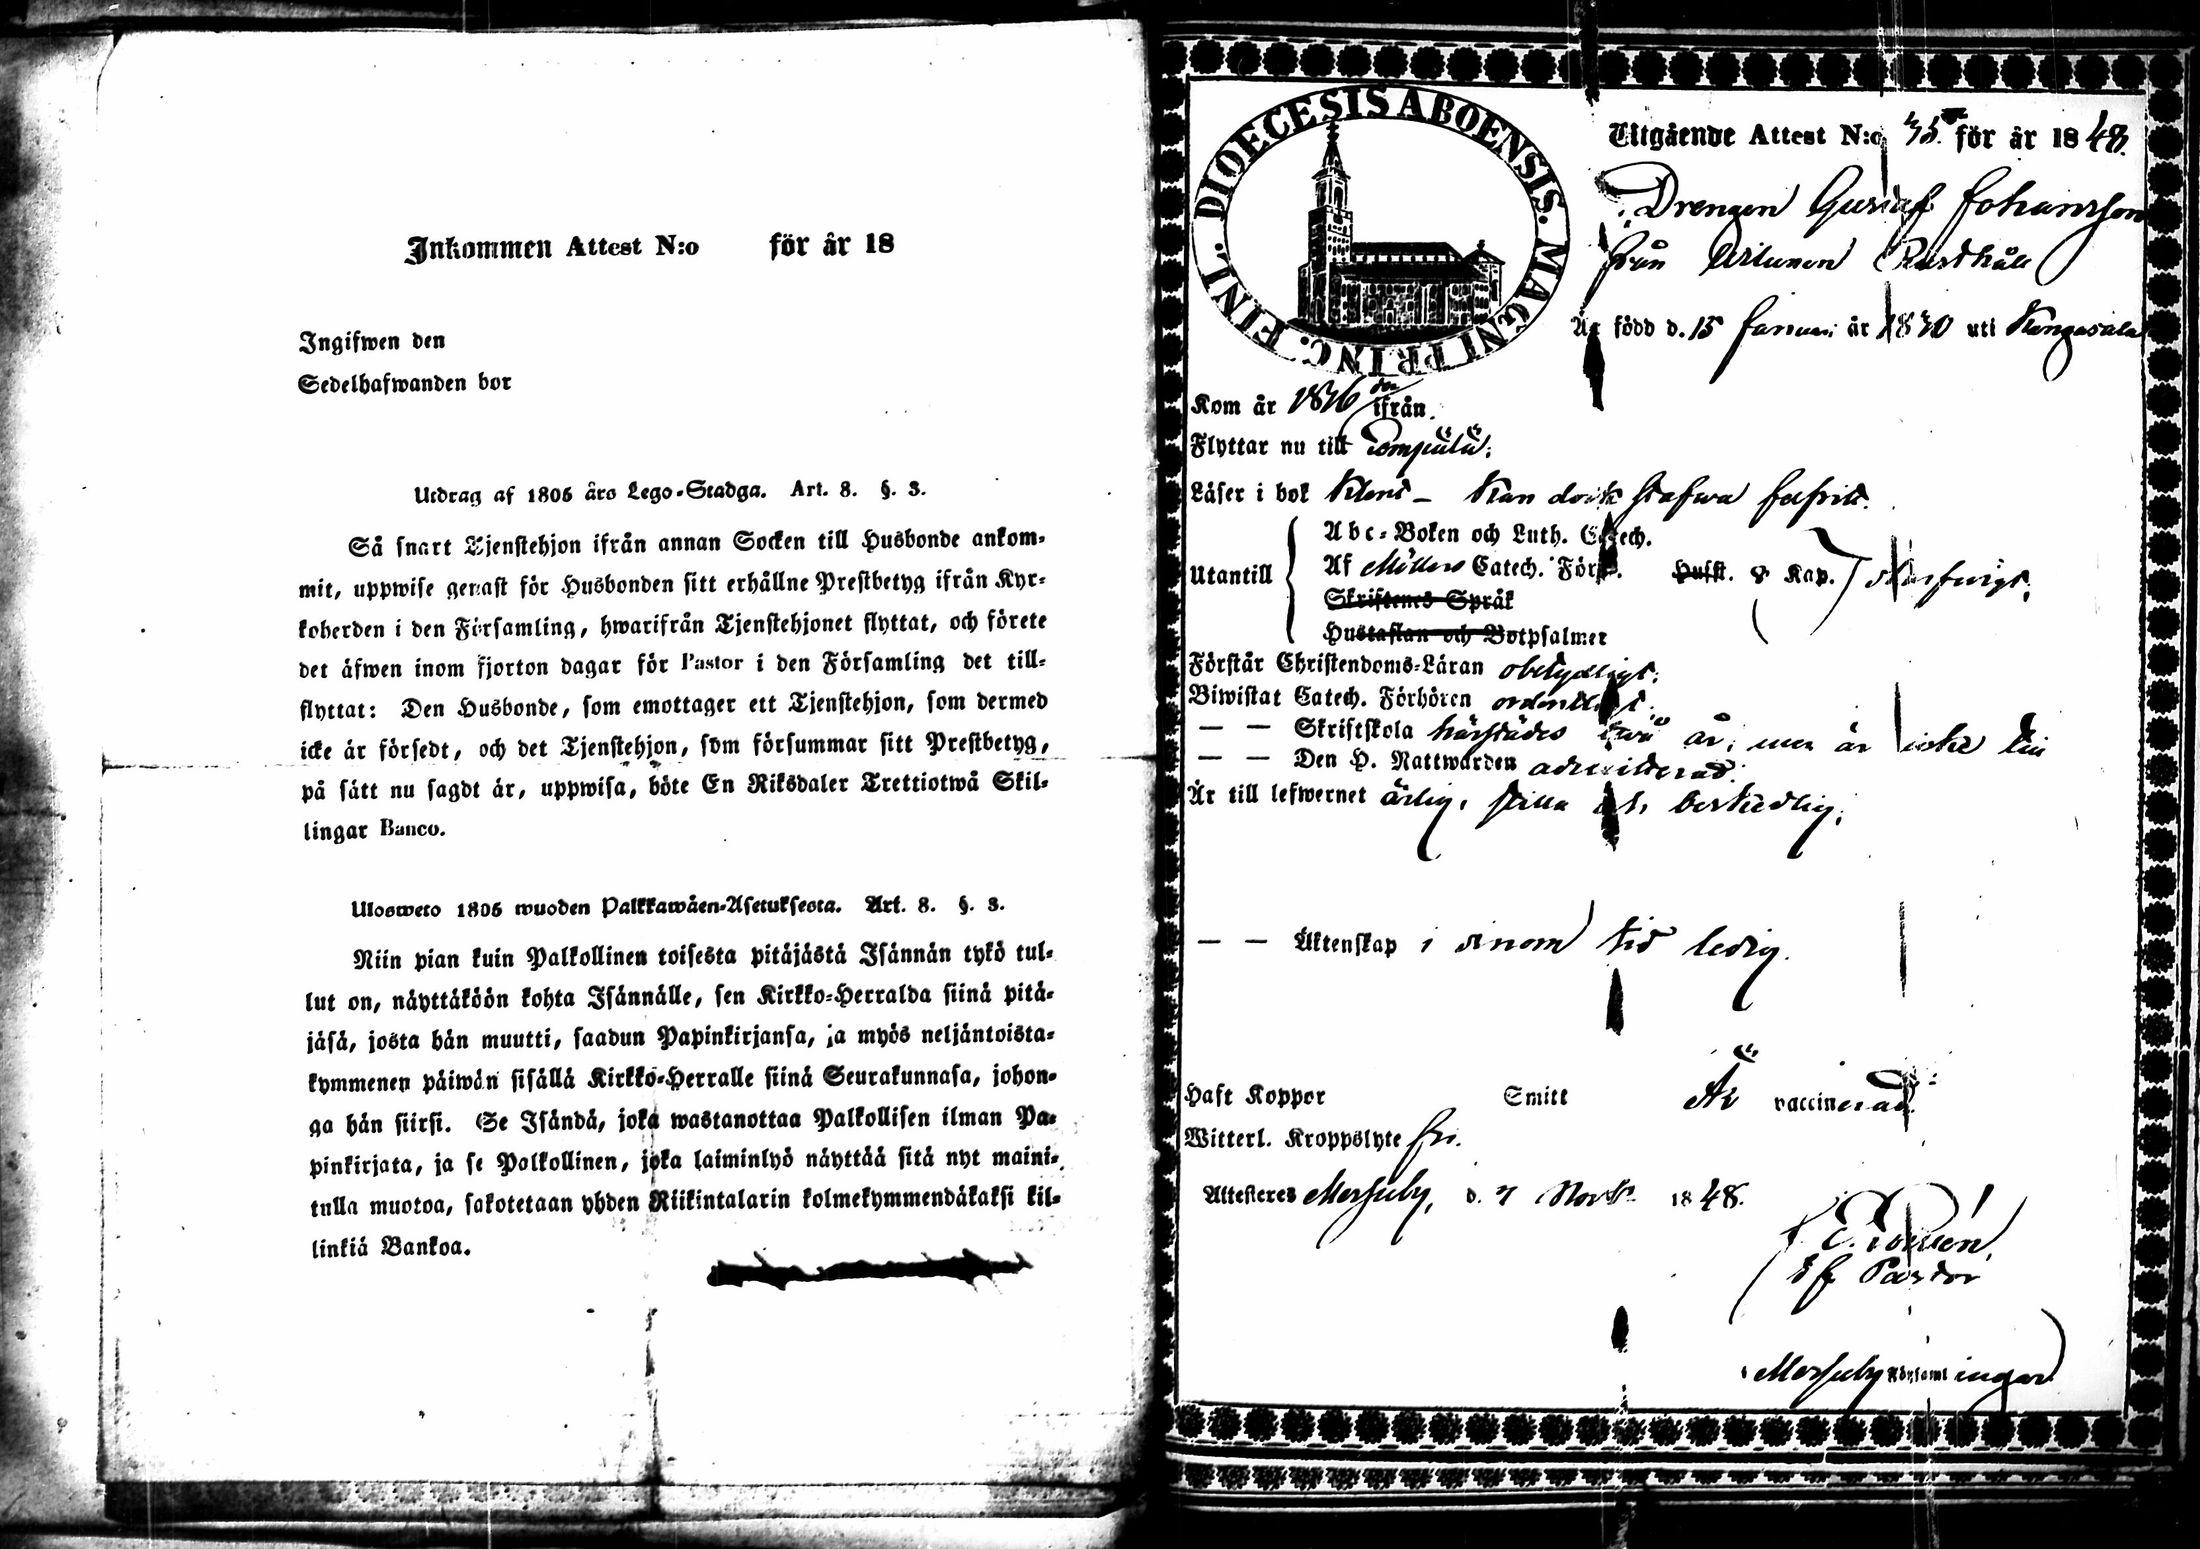 Inkommen Attest N:o för år 18
Ingifwen den
Sedelhafwanden bor
Utdrag af 1805 års Lego-Stadga. Art. 8. §. 3.
Så snart Tjenstehjon ifrån annan Socken till Husbonde ankom-
mit, uppwise genast för Husbonden sitt erhållne Prestbetyg ifrån Kyr-
koherden i den Församling, hwarifrån Tjenstehjonet flyttat, och förete
det äfwen inom fjorton dagar för Pastor i den Församling det till-
flyttat: Den Husbonde, som emottager ett Tjenstehjon, som dermed
icke är försedt, och det Tjenstehjon, som försummar sitt Prestbetyg,
på sätt nu sagdt är, uppwisa, böte En Riksdaler Trettiotwå Skil-
lingar Banco.
Ulosweto 1805 wuoden Palkkawäen-Asetuksesta. Art. 8. §. 3.
Niin pian kuin Palkollinen toisesta pitäjästä Isännän tykö tul-
lut on, näyttäköön kohta Isännälle, sen Kirkko-Herralda siinä pitä-
jäsä, josta hän muutti, saadun Papinkirjansa, ja myös neljäntoista-
kymmenen päiwän sisällä Kirkko-Herralle siinä Seurakunnasa, johon-
ga hän siirsi. Se Isändä, joka wastanottaa Palkollisen ilman Pa-
pinkirjata, ja se Palkollinen, joka laiminlyö näyttää sitä nyt maini-
tulla muotoa, sakotetaan yhden Riikintalarin kolmekymmendäkaksi kil-
linkiä Bankoa.
DIOECESIS ABOENSIS. MAGNI PRINC. FINL.
Utgående Attest N:o 35 för år 1848.
Drengen Gustaf Johansson
från Rusthåll
Är född d. 15 Januari år 1830 uti Kangasala
Kom år 1846 ifrån
Flyttar nu till
Läser i bok Klent - Kan dock stafwa
Abc-Boken och Luth. Catech.
Utantill Af Möllers Catech. Förk. Hufst. 8 Kap.
Skriftenes Språk
Hustaflan och Botpsalmer
Förstår Christendoms-Läran obetydligt.
Biwistat Catech. Förhören ordentligt.
— — Skriftskola härstädes twå år, men är icke till
— — Den H. Nattwarden admitterad.
Är till lefwernet ärlig, stilla och beskedlig.
— — Äktenskap i sinom tid ledig.
Haft Koppor Smitt Är vaccinerad.
Witterl. Kroppslyte fri.
Attesteras Messuby, d. 7 Novbr 1848.
Pastor
Messuby Församlingar